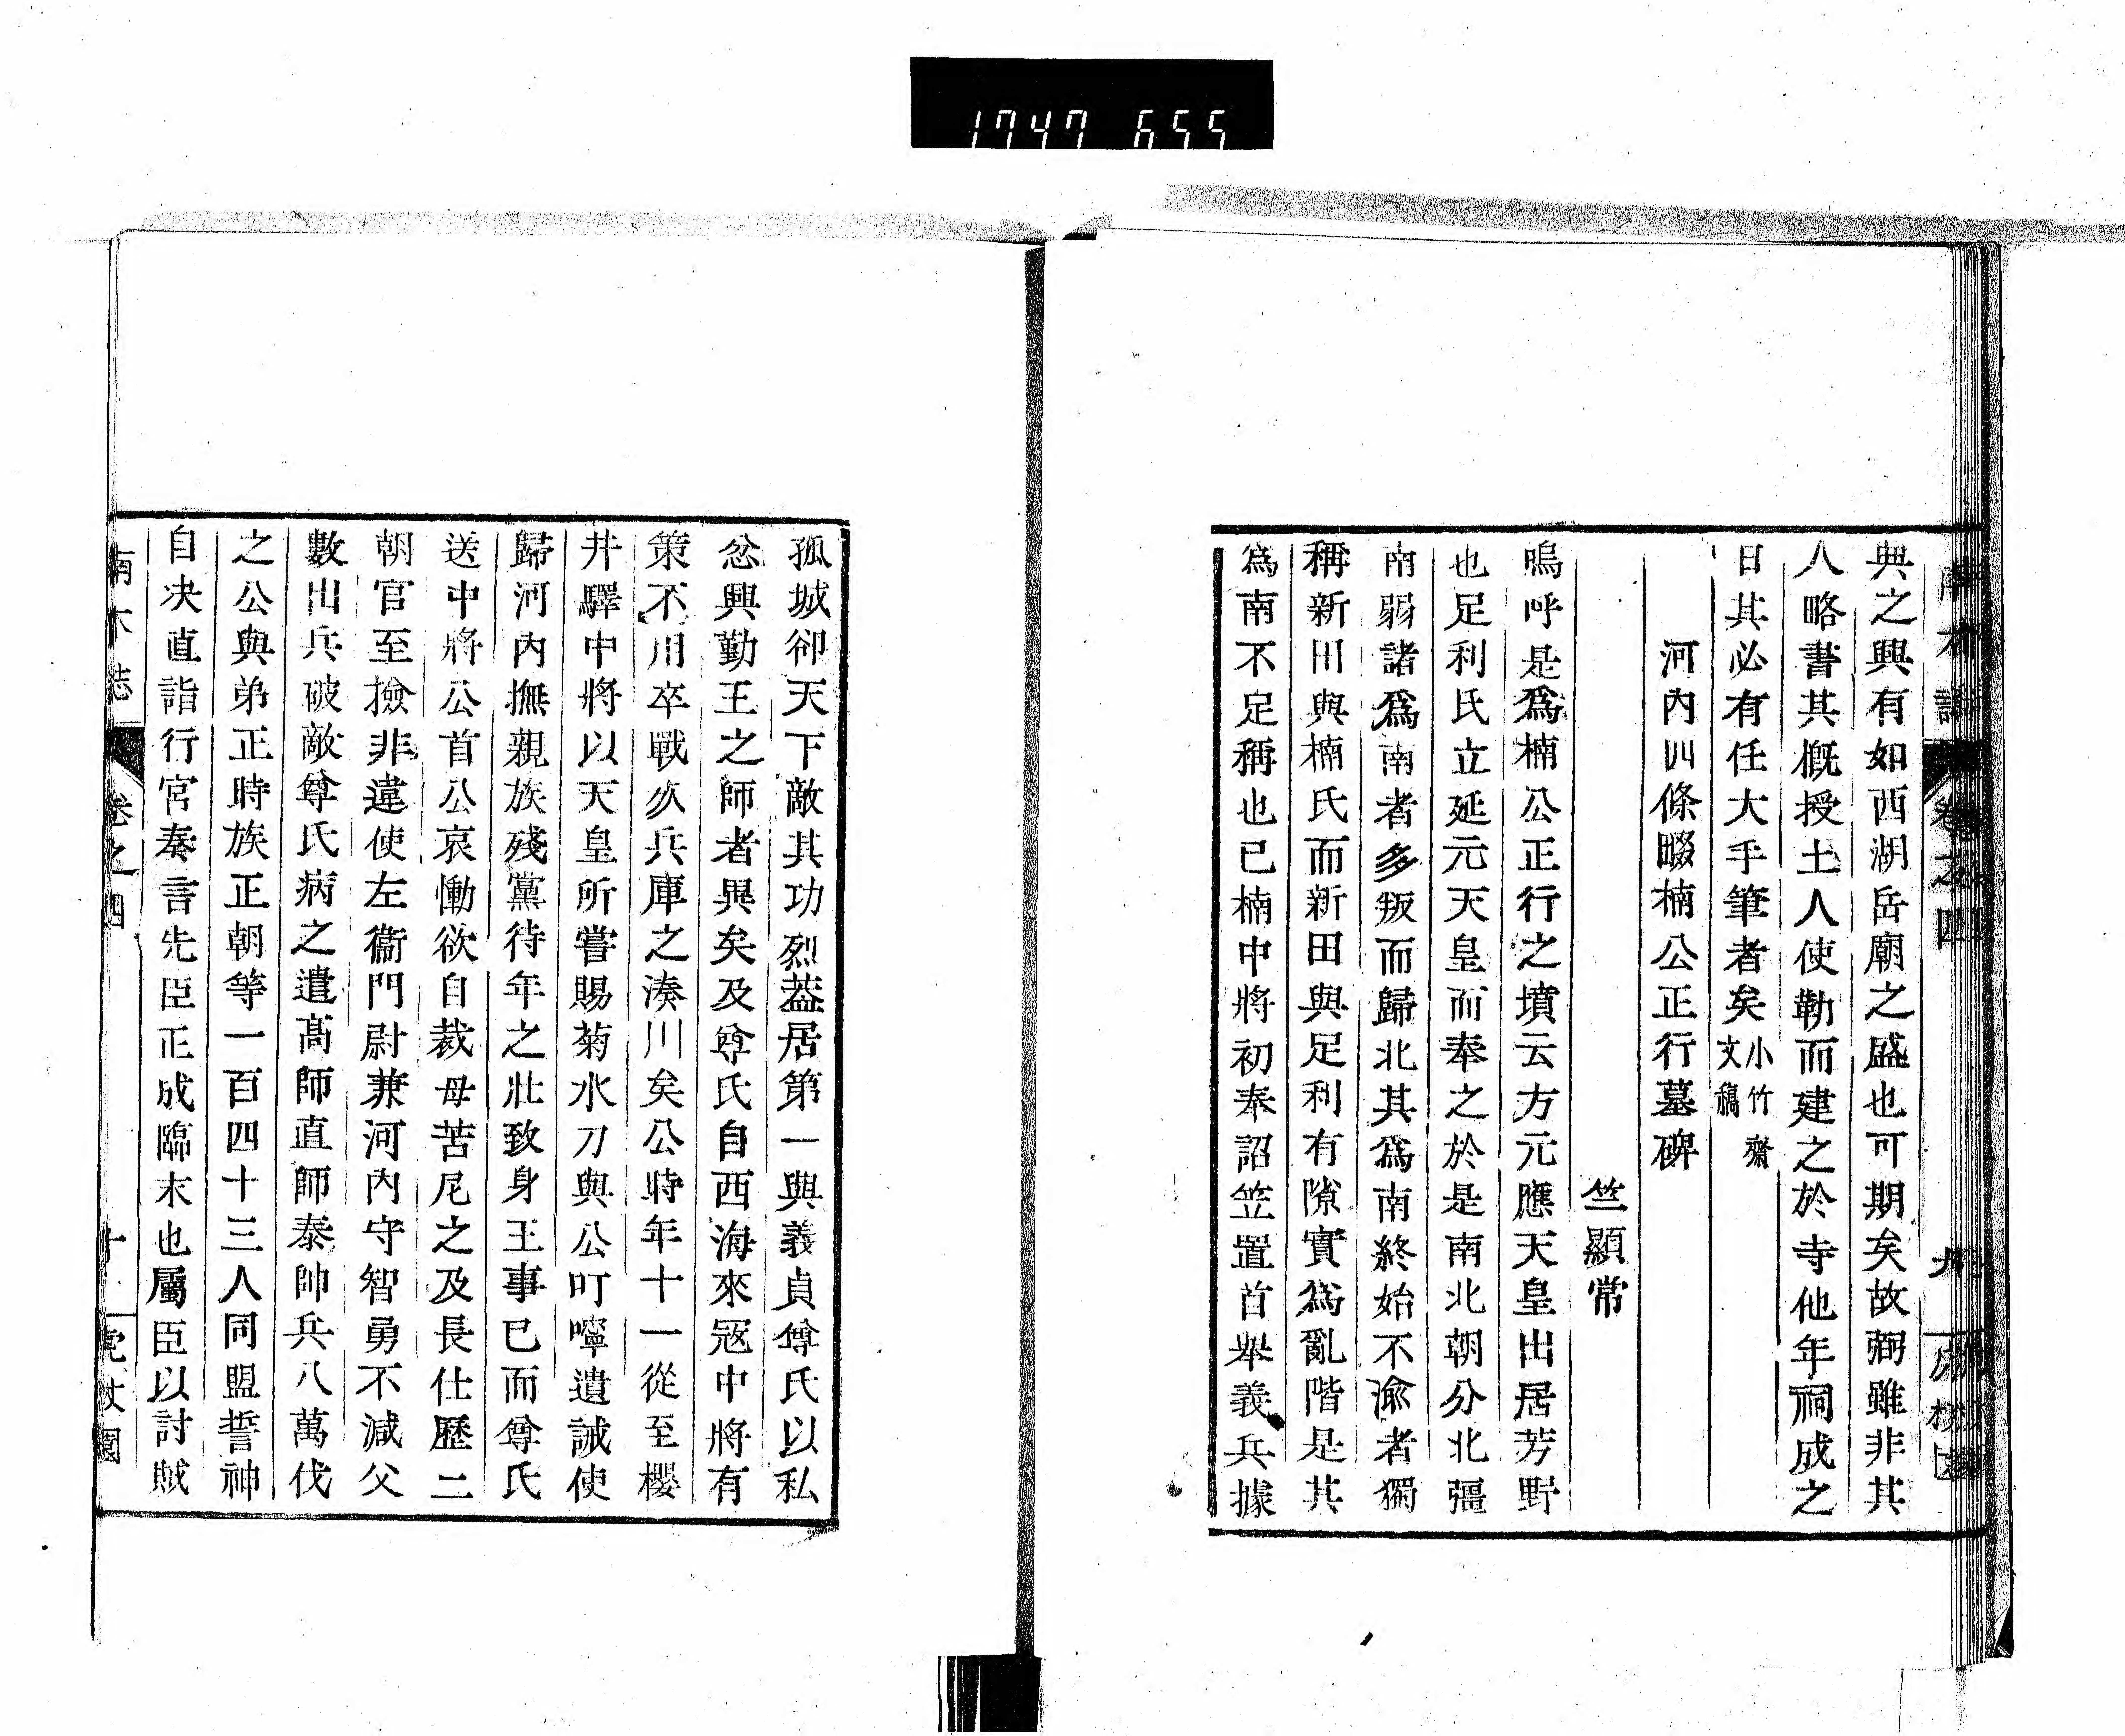 1747 655
典之興有如西湖岳廟之盛也可期矣故弼雖非其
人略書其槪授土人使勒而建之於寺他年祠成之
日其必有任大手筆者矣小竹齋文稿
河內四條畷楠公正行墓碑
竺顯常
嗚呼是爲楠公正行之墳云方元應天皇出居芳野
也足利氏立延元天皇而奉之於是南北朝分北彊
南弱諸爲南者多叛而歸北其爲南終始不渝者獨
稱新田與楠氏而新田與足利有隙實爲亂階是其
爲南不足稱也已楠中將初奉詔笠置首舉義兵據
孤城卻天下敵其功烈葢居第一與義貞尊氏以私
忿興勤王之師者異矣及尊氏自西海來寇中將有
策不用卒戰於兵庫之湊川矣公時年十一從至櫻
井驛中將以天皇所嘗賜菊水刀與公叮嚀遺誡使
歸河內撫親族殘黨待年之壯致身王事已而尊氏
送中將公首公哀慟欲自裁母苦尼之及長仕歷二
朝官至撿非違使左衞門尉兼河內守智勇不減父
數出兵破敵尊氏病之遣髙師直師泰帥兵八萬伐
之公與弟正時族正朝等一百四十三人同盟誓神
自决直詣行宮奏言先臣正成臨末也屬臣以討賊
南木誌 卷之四